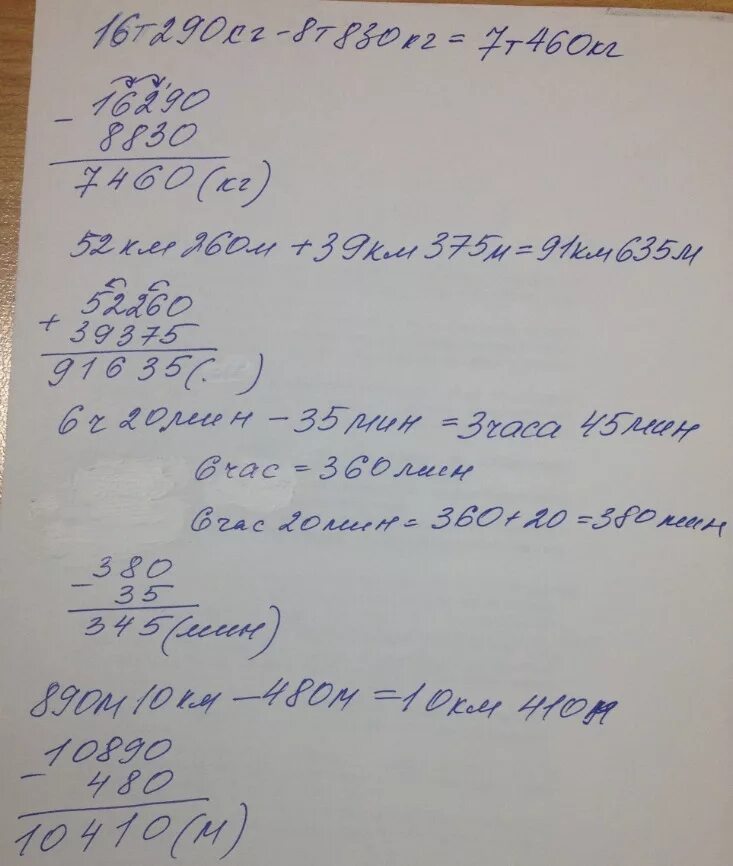 16т290кг-8т830кг=7т460кг
-16290
8830
7460(кг)
52км260м+39км375м=91км635м
+52260
39375
91635(. )
6ч20мин-35мин=3часа 45мин
6час=360мин
6час20мин=360+20=380мин
-380
35
345(мин)
890м10км-480м=10км 410м
-10890
480
10410(м)